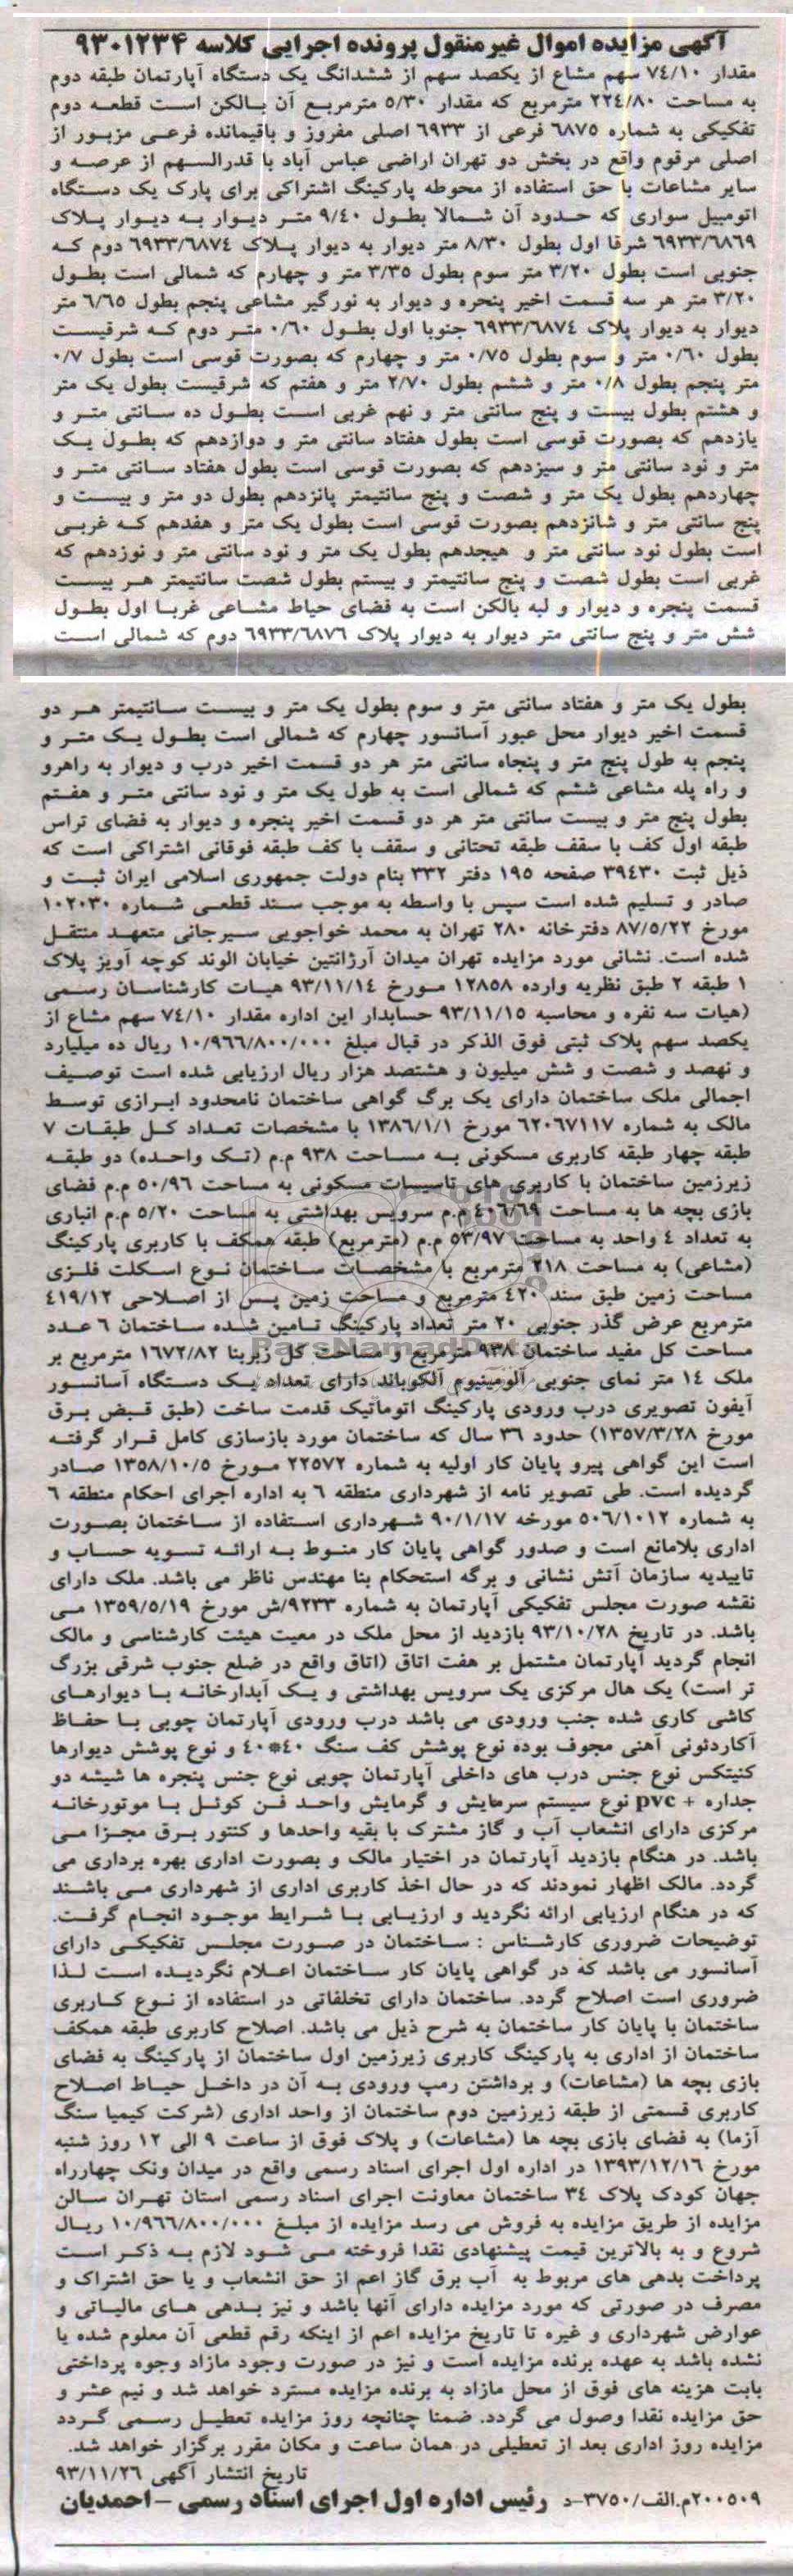 آگهی مزایده اموال غیرمنقول پرونده اجرایی کلاسه ۹۳۰۱۲۳۴
مقدار ۷٤/۱۰ سهم مشاع از یکصد سهم از ششدانگ یک دستگاه آپارتمان طبقه دوم
به مساحت ۲۲٤/۸۰ مترمربع که مقدار ۵/۳۰ مترمربع آن بالکن است قطعه دوم
تفکیکی به شماره ٦۸۷۵ فرعی از ٦۹۳۳ اصلی مفروز و باقیمانده فرعی مزبور از
اصلی مرقوم واقع در بخش دو تهران اراضی عباس آباد با قدرالسهم از عرصه و
سایر مشاعات با حق استفاده از محوطه پارکینگ اشتراکی برای پارک یک دستگاه
اتومبیل سواری که حدود آن شمالا بطول ۹/٤۰ متر دیوار به دیوار پلاک
٦۹۳۳/٦۸٦۹ شرقا اول بطول ۸/۳۰ متر دیوار به دیوار پلاک ٦۹۳۳/٦۸۷٤ دوم که
جنوبی است بطول ۳/۲۰ متر سوم بطول ۳/۳۵ متر و چهارم که شمالی است بطول
۳/۲۰ متر هر سه قسمت اخیر پنجره و دیوار به نورگیر مشاعی پنجم بطول ٦/٦۵ متر
دیوار به دیوار پلاک ٦۹۳۳/٦۸۷٤ جنوبا اول بطول ۰/٦۰ متر دوم که شرقیست
بطول ۰/٦۰ متر و سوم بطول ۰/۷۵ متر و چهارم که بصورت قوسی است بطول ۰/۷
متر پنجم بطول ۰/۸ متر و ششم بطول ۲/۷۰ متر و هفتم که شرقیست بطول یک متر
و هشتم بطول بیست و پنج سانتی متر و نهم غربی است بطول ده سانتی متر و
یازدهم که بصورت قوسی است بطول هفتاد سانتی متر و دوازدهم که بطول یک
متر و نود سانتی متر و سیزدهم که بصورت قوسی است بطول هفتاد سانتی متر و
چهاردهم بطول یک متر و شصت و پنج سانتیمتر پانزدهم بطول دو متر و بیست و
پنج سانتی متر و شانزدهم بصورت قوسی است بطول یک متر و هفدهم که غربی
است بطول نود سانتی متر و هیجدهم بطول یک متر و نود سانتی متر و نوزدهم که
غربی است بطول شصت و پنج سانتیمتر و بیستم بطول شصت سانتیمتر هر بیست
قسمت پنجره و دیوار و لبه بالکن است به فضای حیاط مشاعی غربا اول بطول
شش متر و پنج سانتی متر دیوار به دیوار پلاک ٦۹۳۳/٦۸۷٦ دوم که شمالی است
بطول یک متر و هفتاد سانتی متر و سوم بطول یک متر و بیست سانتیمتر هر دو
قسمت اخیر دیوار محل عبور آسانسور چهارم که شمالی است بطول یک متر و
پنجم به طول پنج متر و پنجاه سانتی متر هر دو قسمت اخیر درب و دیوار به راهرو
و راه پله مشاعی ششم که شمالی است به طول یک متر و نود سانتی متر و هفتم
بطول پنج متر و بیست سانتی متر هر دو قسمت اخیر پنجره و دیوار به فضای تراس
طبقه اول کف با سقف طبقه تحتانی و سقف با کف طبقه فوقانی اشتراکی است که
ذیل ثبت ۳۹٤۳۰ صفحه ۱۹۵ دفتر ۳۳۲ بنام دولت جمهوری اسلامی ایران ثبت و
صادر و تسلیم شده است سپس با واسطه به موجب سند قطعی شماره ۱۰۲۰۳۰
مورخ ۸۷/۵/۲۲ دفترخانه ۲۸۰ تهران به محمد خواجویی سیرجانی متعهد منتقل
شده است. نشانی مورد مزایده تهران میدان آرژانتین خیابان الوند کوچه آویز پلاک
۱ طبقه ۲ طبق نظریه وارده ۱۲۸۵۸ مورخ ۹۳/۱۱/۱٤ هیات کارشناسان رسمی
(هیات سه نفره و محاسبه ۹۳/۱۱/۱۵ حسابدار این اداره مقدار ۷٤/۱۰ سهم مشاع از
یکصد سهم پلاک ثبتی فوق الذکر در قبال مبلغ ۱۰/۹٦٦/۸۰۰/۰۰۰ ریال ده میلیارد
و نهصد و شصت و شش میلیون و هشتصد هزار ریال ارزیابی شده است توصیف
اجمالی ملک ساختمان دارای یک برگ گواهی ساختمان نامحدود ابرازی توسط
مالک به شماره ٦۲۰٦۷۱۱۷ مورخ ۱۳۸٦/۱/۱ با مشخصات تعداد کل طبقات ۷
طبقه چهار طبقه کاربری مسکونی به مساحت ۹۳۸ م.م (تک واحده) دو طبقه
زیرزمین ساختمان با کاربری های تاسیسات مسکونی به مساحت ۵۰/۹٦ م.م فضای
بازی بچه ها به مساحت ٤۰٦/٦۹ م.م سرویس بهداشتی به مساحت ۵/۲۰ م.م انباری
به تعداد ٤ واحد به مساحت ۵۳/۹۷ م.م (مترمربع) طبقه همکف با کاربری پارکینگ
(مشاعی) به مساحت ۲۱۸ مترمربع با مشخصات ساختمان نوع اسکلت فلزی
مساحت زمین طبق سند ٤۲۰ مترمربع و مساحت زمین پس از اصلاحی ٤۱۹/۱۲
مترمربع عرض گذر جنوبی ۲۰ متر تعداد پارکینگ تامین شده ساختمان ٦ عدد
مساحت کل مفید ساختمان ۹۳۸ مترمربع و مساحت کل زیربنا ۱٦۷۲/۸۲ مترمربع بر
ملک ۱٤ متر نمای جنوبی آلومینیوم آلکوباند دارای تعداد یک دستگاه آسانسور
آیفون تصویری درب ورودی پارکینگ اتوماتیک قدمت ساخت (طبق قبض برق
مورخ ۱۳۵۷/۳/۲۸) حدود ۳٦ سال که ساختمان مورد بازسازی کامل قرار گرفته
است این گواهی پیرو پایان کار اولیه به شماره ۲۲۵۷۲ مورخ ۱۳۵۸/۱۰/۵ صادر
گردیده است. طی تصویر نامه از شهرداری منطقه ٦ به اداره اجرای احکام منطقه ٦
به شماره ۵۰٦/۱۰۱۲ مورخه ۹۰/۱/۱۷ شهرداری استفاده از ساختمان بصورت
اداری بلامانع است و صدور گواهی پایان کار منوط به ارائه تسویه حساب و
تاییدیه سازمان آتش نشانی و برگه استحکام بنا مهندس ناظر می باشد. ملک دارای
نقشه صورت مجلس تفکیکی آپارتمان به شماره ۹۲۳۳/ش مورخ ۱۳۵۹/۵/۱۹ می
باشد. در تاریخ ۹۳/۱۰/۲۸ بازدید از محل ملک در معیت هیئت کارشناسی و مالک
انجام گردید آپارتمان مشتمل بر هفت اتاق (اتاق واقع در ضلع جنوب شرقی بزرگ
تر است) یک هال مرکزی یک سرویس بهداشتی و یک آبدارخانه با دیوارهای
کاشی کاری شده جنب ورودی می باشد درب ورودی آپارتمان چوبی با حفاظ
آکاردئونی آهنی مجوف بوده نوع پوشش کف سنگ ٤۰*٤۰ و نوع پوشش دیوارها
کنیتکس نوع جنس درب های داخلی آپارتمان چوبی نوع جنس پنجره ها شیشه دو
جداره + pvc نوع سیستم سرمایش و گرمایش واحد فن کوئل با موتورخانه
مرکزی دارای انشعاب آب و گاز مشترک با بقیه واحدها و کنتور برق مجزا می
باشد. در هنگام بازدید آپارتمان در اختیار مالک و بصورت اداری بهره برداری می
گردد. مالک اظهار نمودند که در حال اخذ کاربری اداری از شهرداری می باشند
که در هنگام ارزیابی ارائه نگردید و ارزیابی با شرایط موجود انجام گرفت.
توضیحات ضروری کارشناس : ساختمان در صورت مجلس تفکیکی دارای
آسانسور می باشد که در گواهی پایان کار ساختمان اعلام نگردیده است لذا
ضروری است اصلاح گردد. ساختمان دارای تخلفاتی در استفاده از نوع کاربری
ساختمان با پایان کار ساختمان به شرح ذیل می باشد. اصلاح کاربری طبقه همکف
ساختمان از اداری به پارکینگ کاربری زیرزمین اول ساختمان از پارکینگ به فضای
بازی بچه ها (مشاعات) و برداشتن رمپ ورودی به آن در داخل حیاط اصلاح
کاربری قسمتی از طبقه زیرزمین دوم ساختمان از واحد اداری (شرکت کیمیا سنگ
آزما) به فضای بازی بچه ها (مشاعات) و پلاک فوق از ساعت ۹ الی ۱۲ روز شنبه
مورخ ۱۳۹۳/۱۲/۱٦ در اداره اول اجرای اسناد رسمی واقع در میدان ونک چهارراه
جهان کودک پلاک ۳٤ ساختمان معاونت اجرای اسناد رسمی استان تهران سالن
مزایده از طریق مزایده به فروش می رسد مزایده از مبلغ ۱۰/۹٦٦/۸۰۰/۰۰۰ ریال
شروع و به بالاترین قیمت پیشنهادی نقدا فروخته می شود لازم به ذکر است
پرداخت بدهی های مربوط به آب برق گاز اعم از حق انشعاب و یا حق اشتراک و
مصرف در صورتی که مورد مزایده دارای آنها باشد و نیز بدهی های مالیاتی و
عوارض شهرداری و غیره تا تاریخ مزایده اعم از اینکه رقم قطعی آن معلوم شده یا
نشده باشد به عهده برنده مزایده است و نیز در صورت وجود مازاد وجوه پرداختی
بابت هزینه های فوق از محل مازاد به برنده مزایده مسترد خواهد شد و نیم عشر و
حق مزایده نقدا وصول می گردد. ضمنا چنانچه روز مزایده تعطیل رسمی گردد
مزایده روز اداری بعد از تعطیلی در همان ساعت و مکان مقرر برگزار خواهد شد.
تاریخ انتشار آگهی ۹۳/۱۱/۲٦
۲۰۰۵۰۹م.الف/۳۷۵۰-د رئیس اداره اول اجرای اسناد رسمی - احمدیان